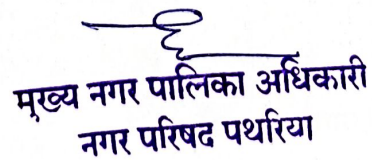 मुख्य नगर पालिका अधिकारी
नगर परिषद पथरिया